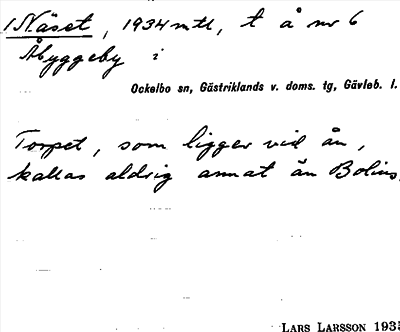 1 Näset, 1934 mtl, t å nr 6
Åbyggeby i
Ockelbo sn, Gästriklands v. doms. tg, Gävleb. l.
Torpet, som ligger vid ån,
kallas aldrig annat än Bolins.
LARS LARSSON 1935